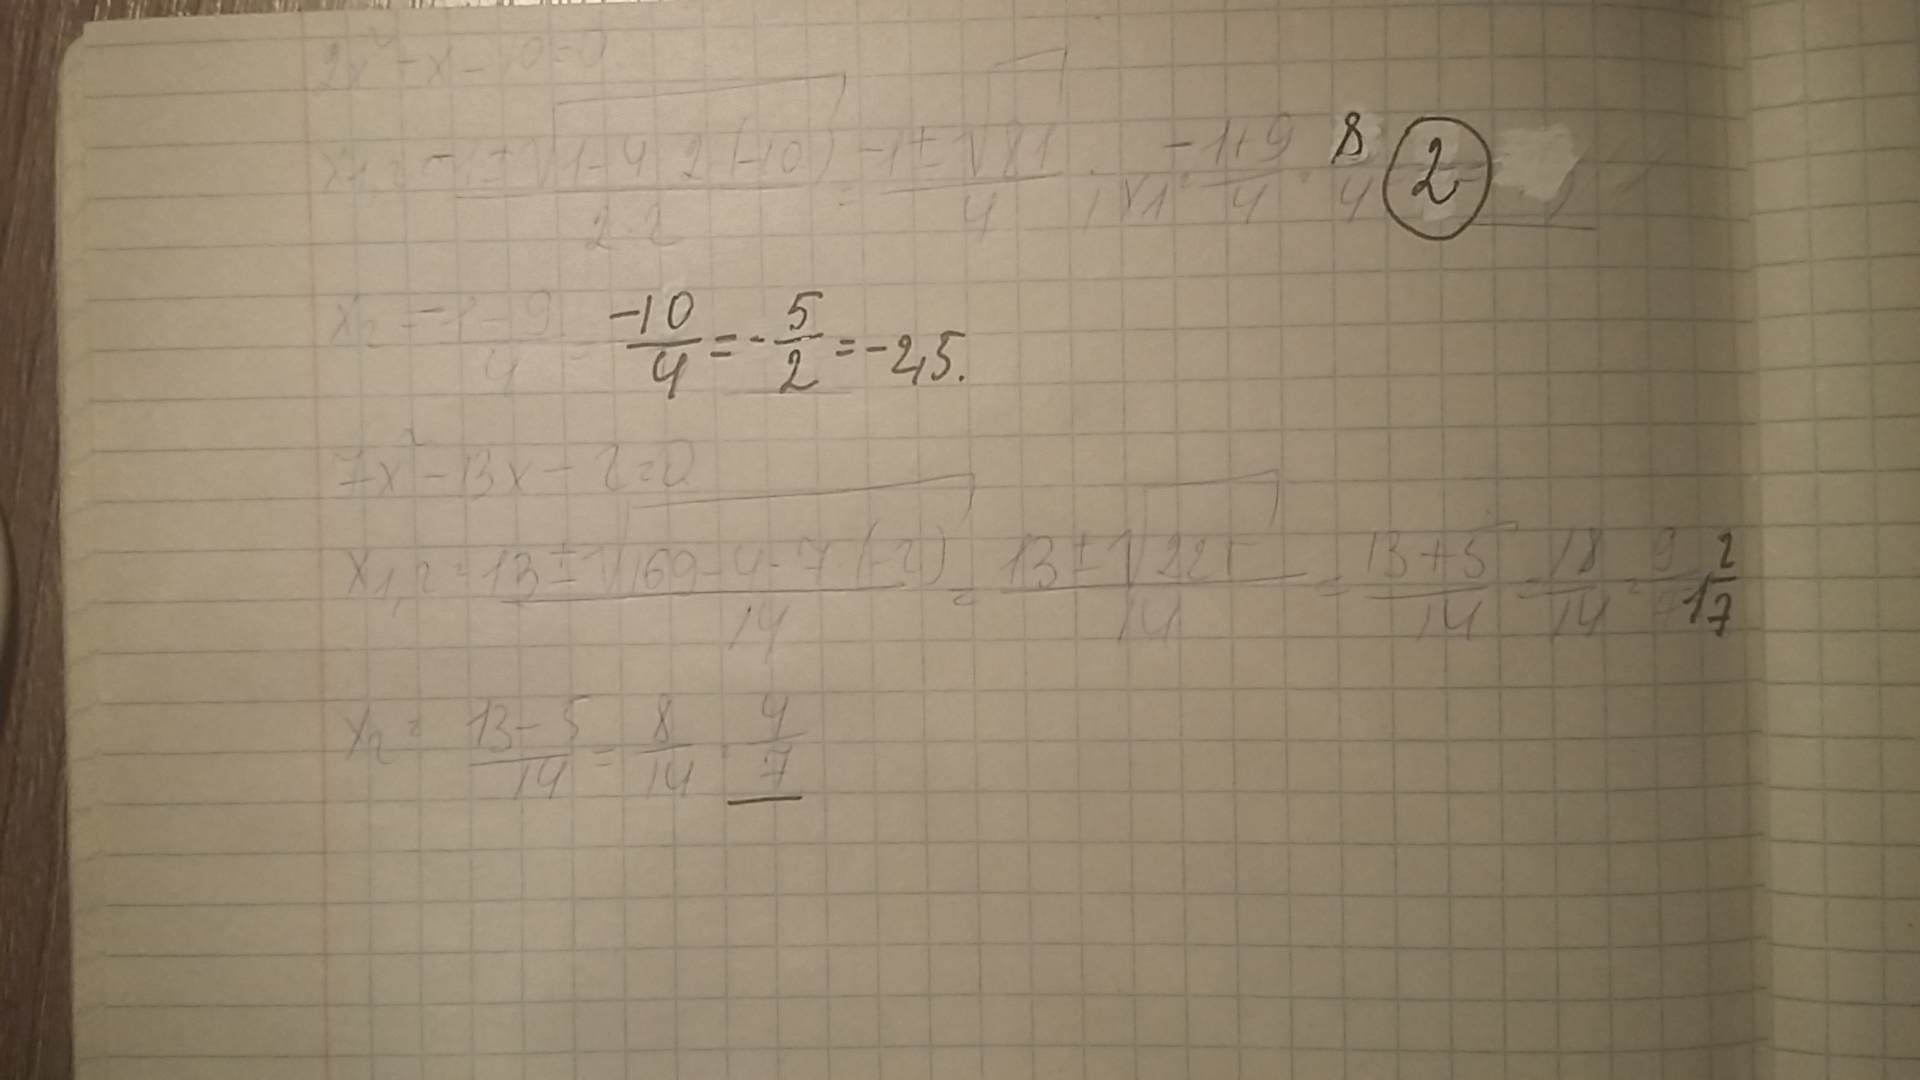 2x² + x - 10 = 0
x1,2 = -1 ± √(1 - 4 · 2 (-10)) / 2·2 = -1 ± √81 / 4 ; x1 = -1+9 / 4 = 8/4 2
x2 = -1 - 9 / 4 = -10/4 = -5/2 = -2,5.
7x² - 13x - 2 = 0
x1,2 = 13 ± √(169 - 4 · 7 · (-2)) / 14 = 13 ± √225 / 14 = 13 + 5 / 14 = 18/14 = 9/7 1 2/7
x2 = 13 - 5 / 14 = 8/14 = 4/7